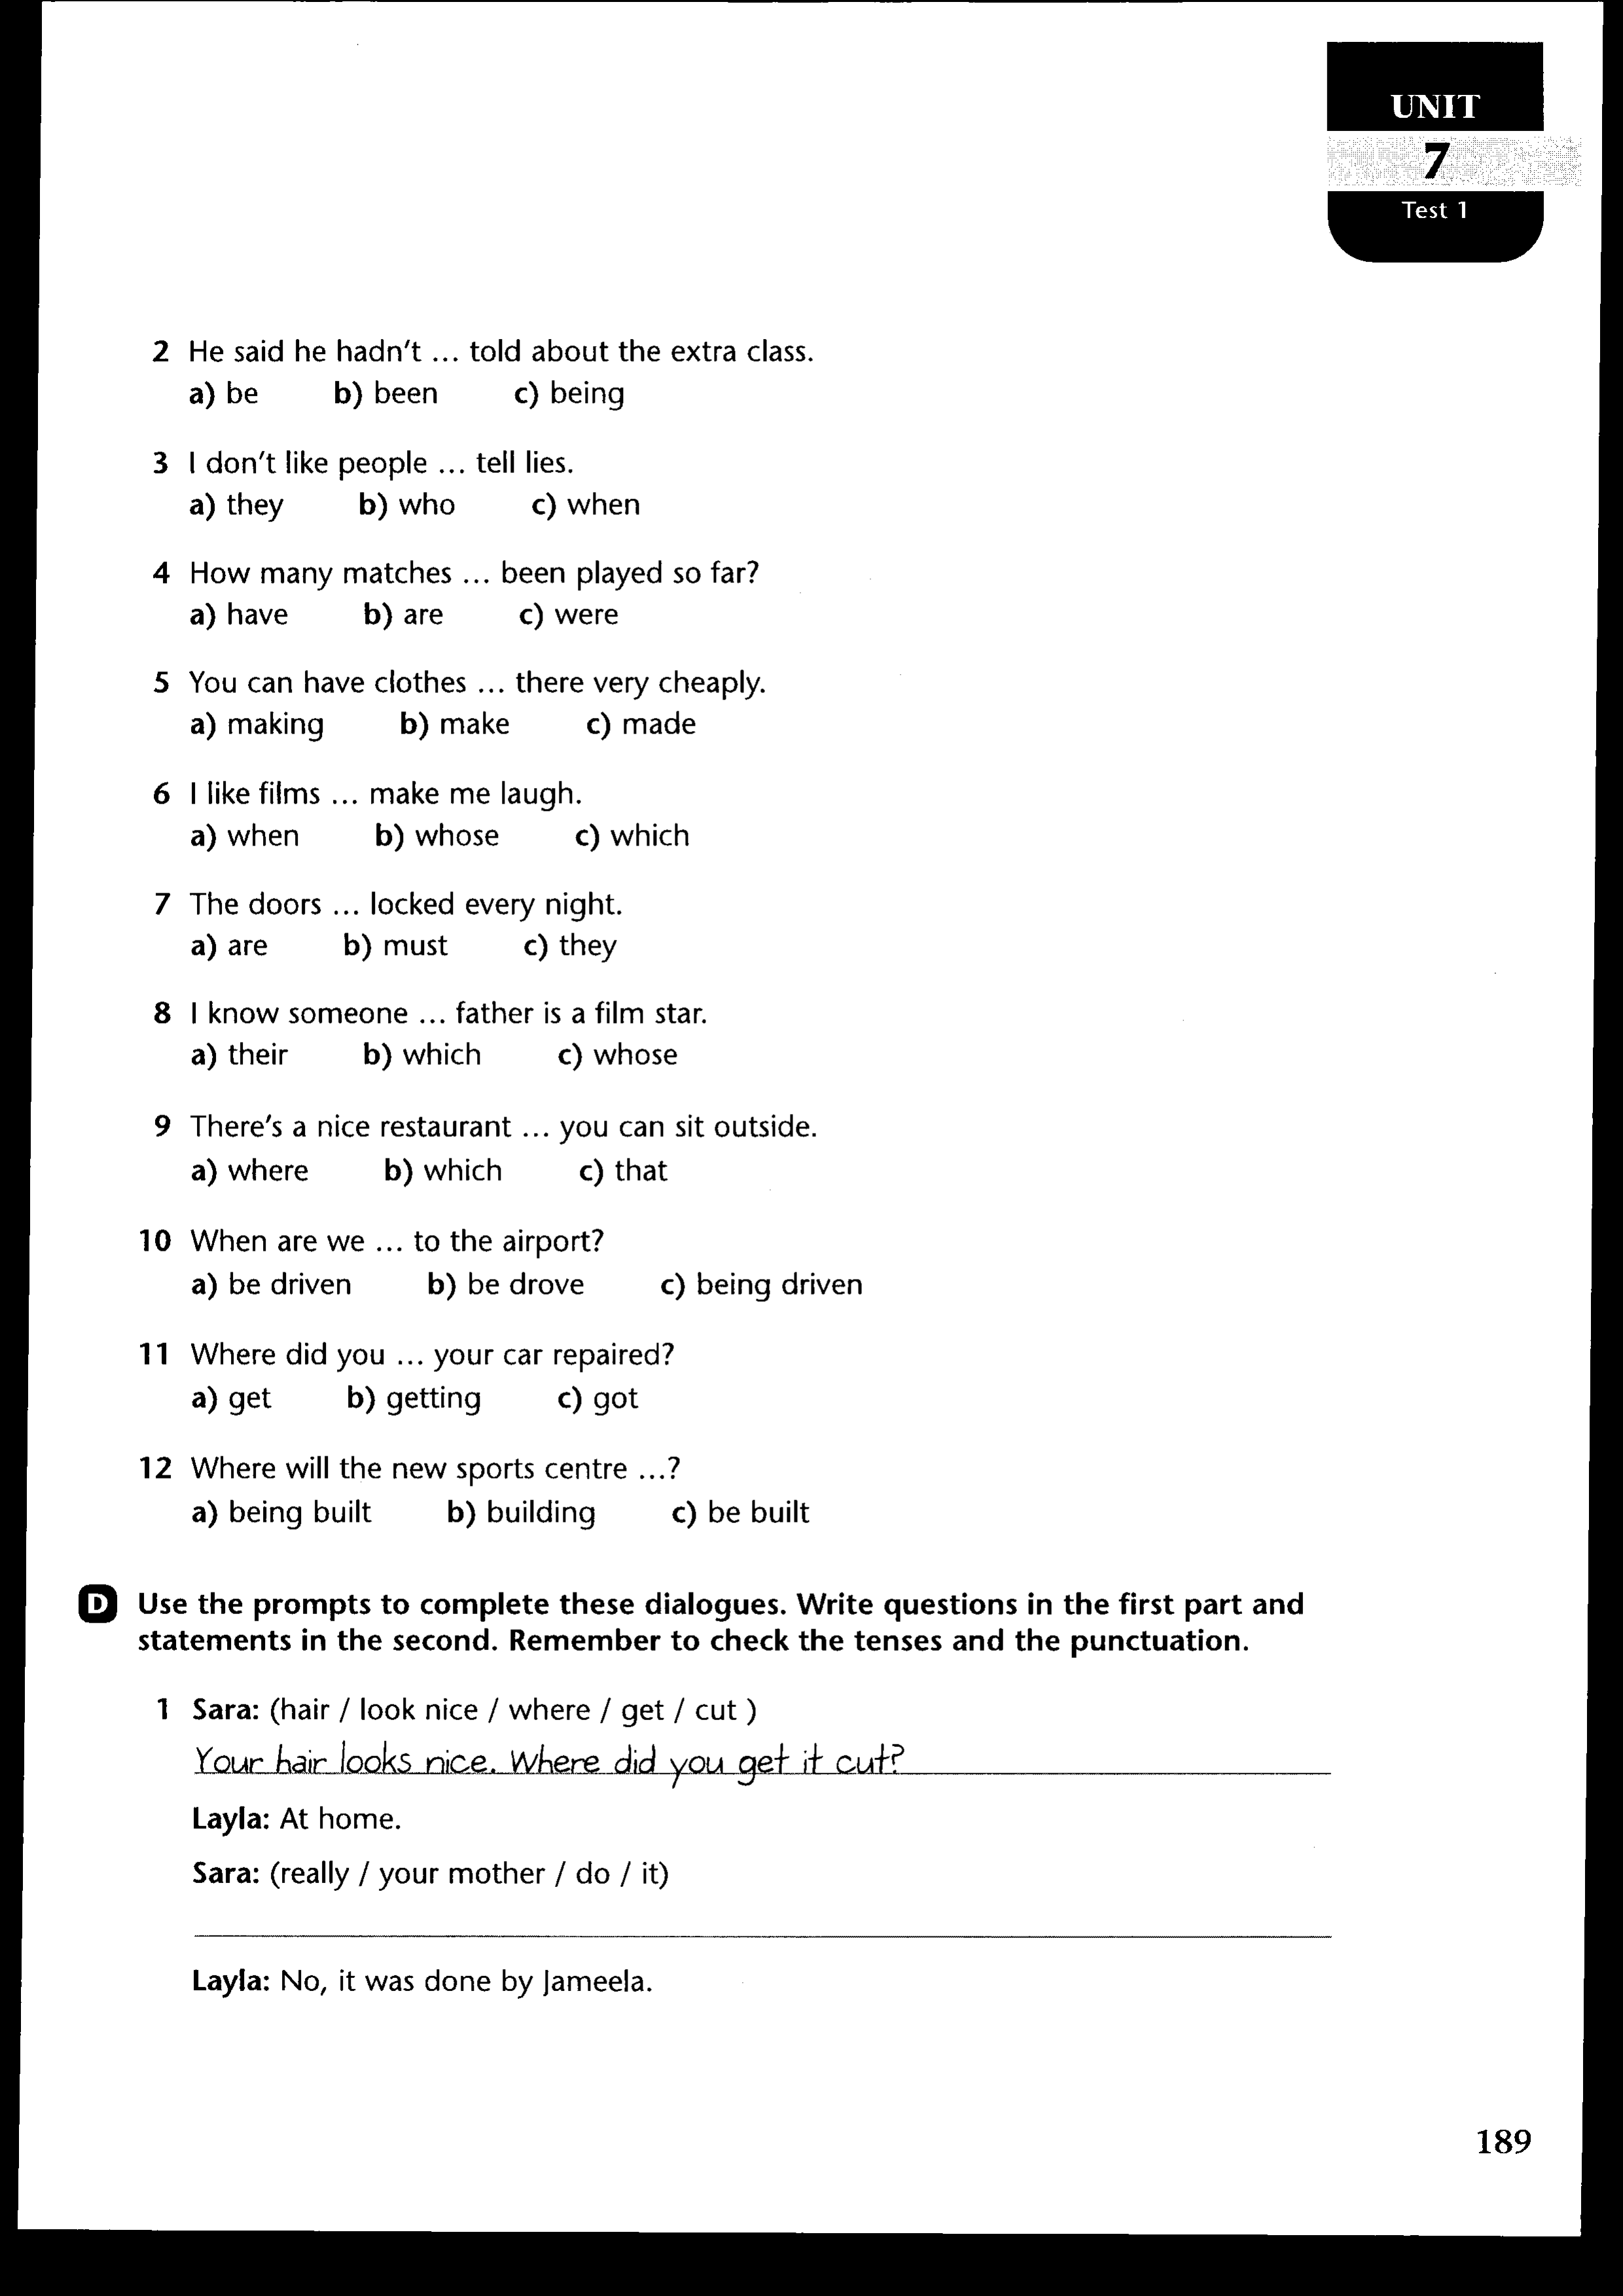 UNIT
7
Test 1
2 He said he hadn't ... told about the extra class.
a) be b) been c) being
3 I don't like people ... tell lies.
a) they b) who c) when
4 How many matches ... been played so far?
a) have b) are c) were
5 You can have clothes ... there very cheaply.
a) making b) make c) made
6 I like films ... make me laugh.
a) when b) whose c) which
7 The doors ... locked every night.
a) are b) must c) they
8 I know someone ... father is a film star.
a) their b) which c) whose
9 There's a nice restaurant ... you can sit outside.
a) where b) which c) that
10 When are we ... to the airport?
a) be driven b) be drove c) being driven
11 Where did you ... your car repaired?
a) get b) getting c) got
12 Where will the new sports centre ...?
a) being built b) building c) be built
D Use the prompts to complete these dialogues. Write questions in the first part and
statements in the second. Remember to check the tenses and the punctuation.
1 Sara: (hair / look nice / where / get / cut )
Your hair looks nice. Where did you get it cut?
Layla: At home.
Sara: (really / your mother / do / it)
Layla: No, it was done by Jameela.
189